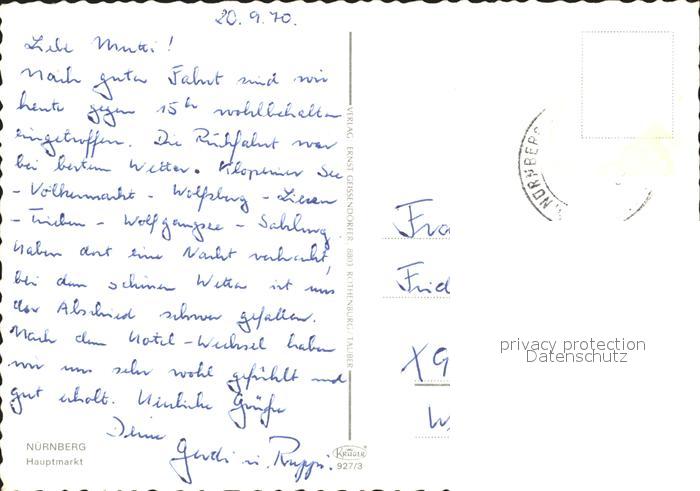 20.9.70.
Liebe Mutti!
Nach guter Fahrt sind wir
heute gegen 15 h wohlbehalten
eingetroffen. Die Rückfahrt war
bei bestem Wetter. Klopeiner See
- Völkermarkt - Wolfsberg - Liezen
- Trieben - Wolfgangsee - Salzburg.
Haben dort eine Nacht verbracht,
bei dem schönen Wetter ist uns
der Abschied schwer gefallen.
Nach dem Hotel-Wechsel haben
wir uns sehr wohl gefühlt und
gut erholt. Herzliche Grüße
Deine
Gerdi u. Ruppi.
NÜRNBERG
Hauptmarkt
VERLAG ERNST GEISSENDÖRFER, 8803 ROTHENBURG/TAUBER
KRÜGER
927/3
NÜRNBERG
Fra
Fried
X9
W
privacy protection
Datenschutz